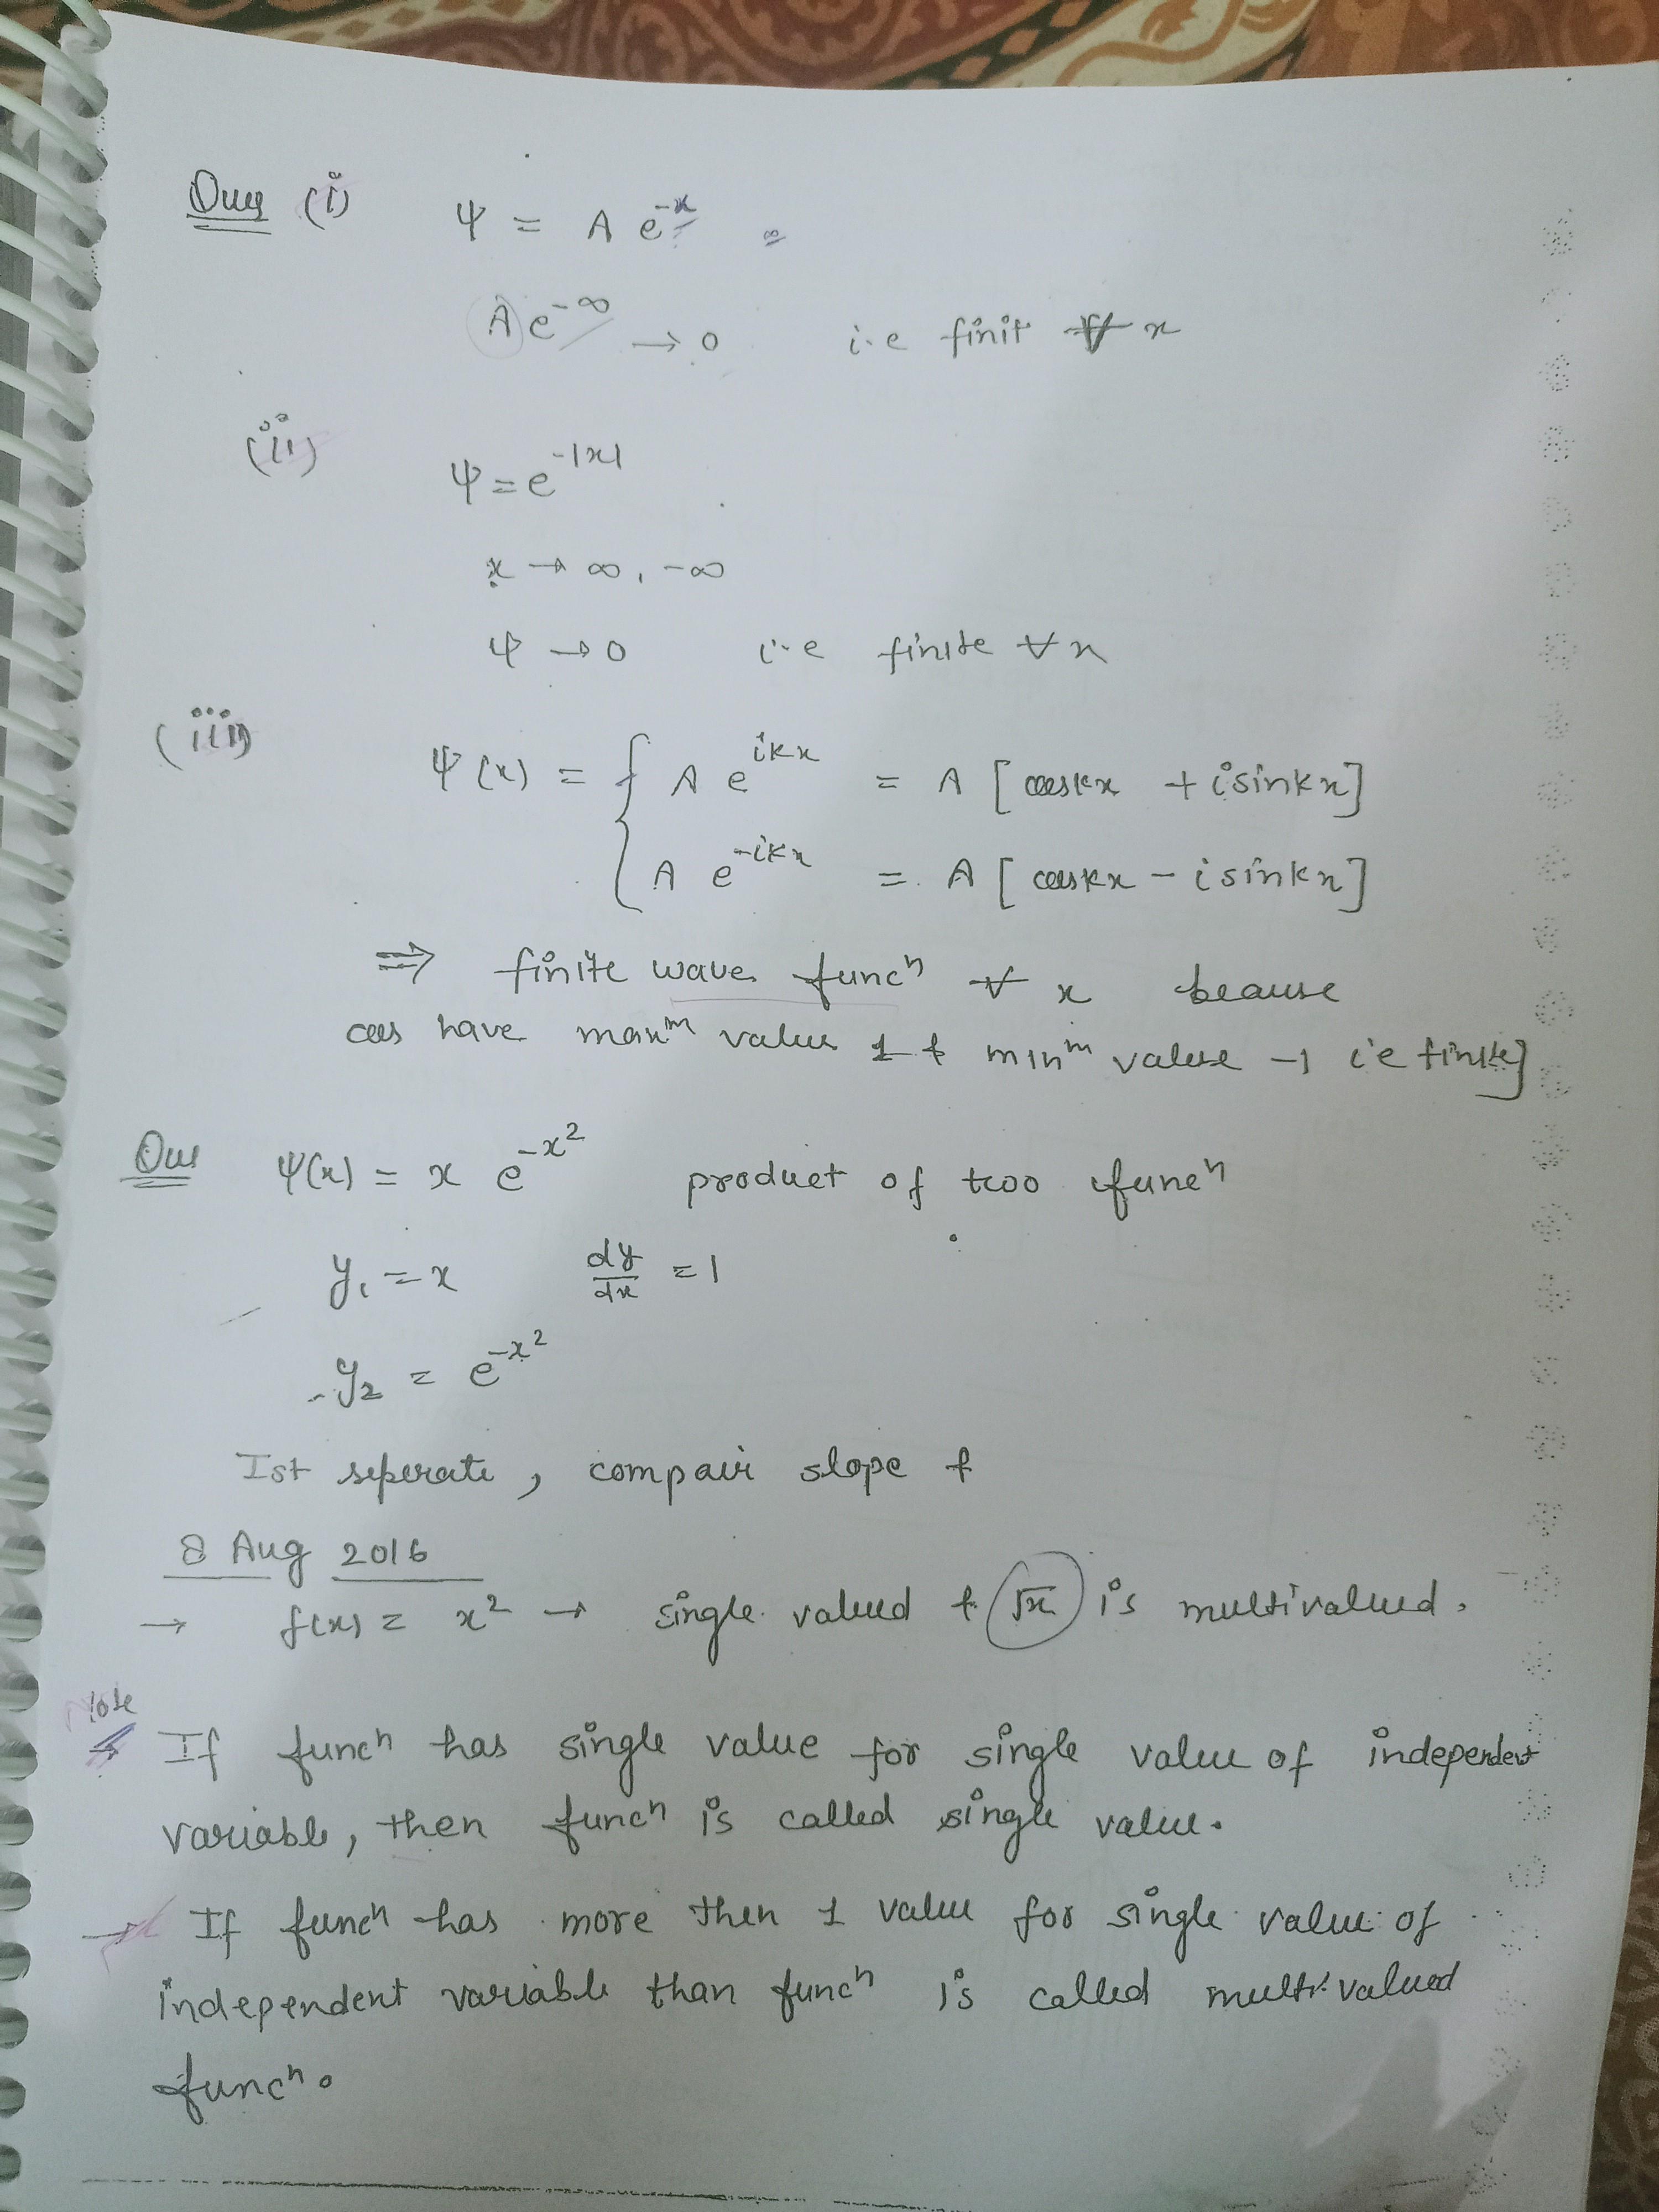 Ques (i) ψ = A e^-x ∞
A e^-∞ → 0 i.e finit ∀ x
(ii) ψ = e^-|x|
x → ∞, -∞
ψ → 0 i.e finite ∀ x
(iii) ψ(x) = { A e^ikx = A [coskx + i sinkx]
A e^-ikx = A [coskx - i sinkx]
⇒ finite wave funcⁿ ∀ x beause
cos have maxᵐ value 1 & minᵐ value -1 i.e finite]
Ques ψ(x) = x e^-x² product of two funcⁿ
y₁ = x dy/dx = 1
y₂ = e^-x²
Ist seperate, compair slope &
8 Aug 2016
→ f(x) = x² → single valued & √x is multivalued.
Note
→ If funcⁿ has single value for single value of independent
variable, then funcⁿ is called single value.
→ If funcⁿ has more then 1 value for single value of
independent variable than funcⁿ is called multivalued
funcⁿ.